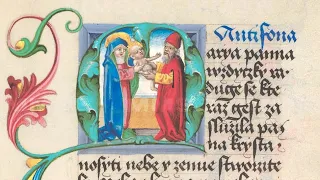 Antifona
arya panna
wzdyczky za
duge se kte
raz gest za
sluzila pa
na krysta
nosyti nebe y zemie stworzite